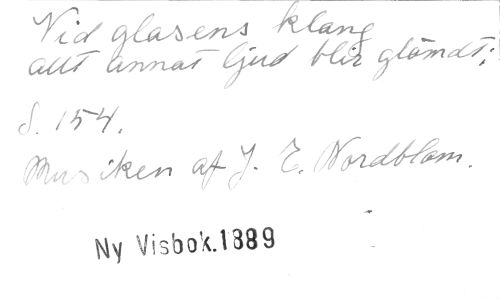 Vid glasens klang
allt annat ljud blir glömdt;
S. 154.
Musiken af J. E. Nordblom.
Ny Visbok.1889